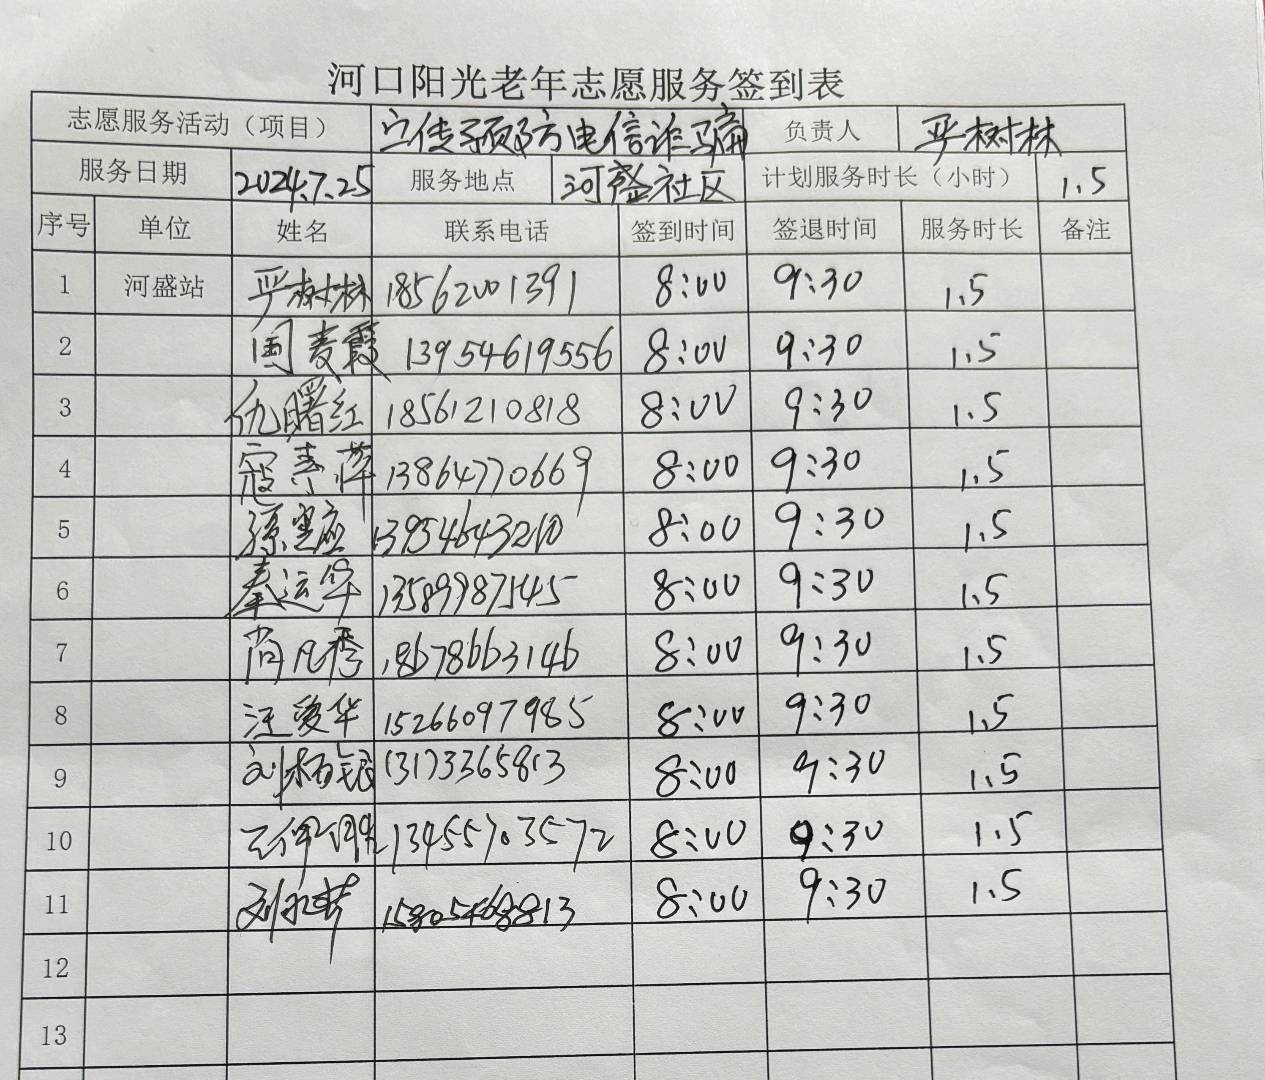 河口阳光老年志愿服务签到表
志愿服务活动（项目） 宣传预防电信诈骗 负责人 严树林
服务日期 2024.7.25 服务地点 河盛社区 计划服务时长（小时） 1.5
序号 单位 姓名 联系电话 签到时间 签退时间 服务时长 备注
1 河盛站 严树林 18562001391 8:00 9:30 1.5
2 国麦霞 13954619556 8:00 9:30 1.5
3 仇曙红 18561210818 8:00 9:30 1.5
4 寇素萍 13864770669 8:00 9:30 1.5
5 13954643210 8:00 9:30 1.5
6 秦运华 13589987545 8:00 9:30 1.5
7 尚凡秀 18678663146 8:00 9:30 1.5
8 汪爱华 15266097985 8:00 9:30 1.5
9 13173365813 8:00 9:30 1.5
10 13455703572 8:00 9:30 1.5
11 15805468813 8:00 9:30 1.5
12
13